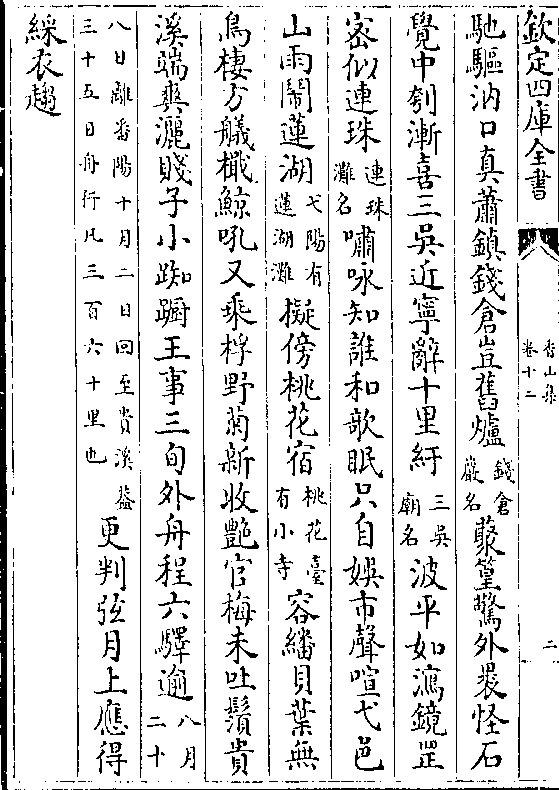 欽定四庫全書
香山集
卷十二
二
馳驅汭口真蕭鎮錢倉豈舊爐錢倉巖名藂篁驚外裊怪石
覺中刳漸喜三吳近寧辭十里紆三吳廟名波平如瀉鏡罡
密似連珠連珠灘名嘯咏知誰和歌眠只自娛市聲喧弋邑
山雨鬧蓮湖弋陽有蓮湖灘擬傍桃花宿桃花臺有小寺容繙貝葉無
鳥棲方艤檝鯨吼又乘桴野菊新收艷官梅未吐鬚貴
溪端爽灑賤子小踟躕王事三旬外舟程六驛逾八月二十
八日離番陽十月二日回至貴溪葢三十五日舟行凡三百六十里也更判弦月上應得
綵衣趨